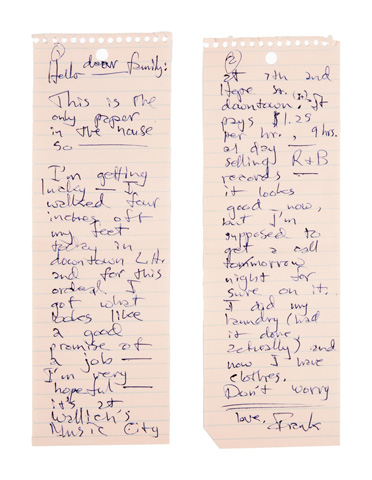 ①
Hello dear family:
This is the
only paper
in the house
so —
I'm getting
lucky — I
walked four
inches off
my feet
today in
downtown L.A.
and for this
ordeal I
got what
looks like
a good
promise of
a job —
I'm very
hopeful —
it's at
Wallich's
Music City
②
at 7th and
Hope St.
downtown. It
pays $1.25
per hr., 9 hrs.
a day —
selling R+B
records —
it looks
good now,
but I'm
supposed to
get a call
tommorrow
night for
sure on it.
I did my
laundry (had
it done,
actually) and
now I have
clothes.
Don't worry
love, Frank